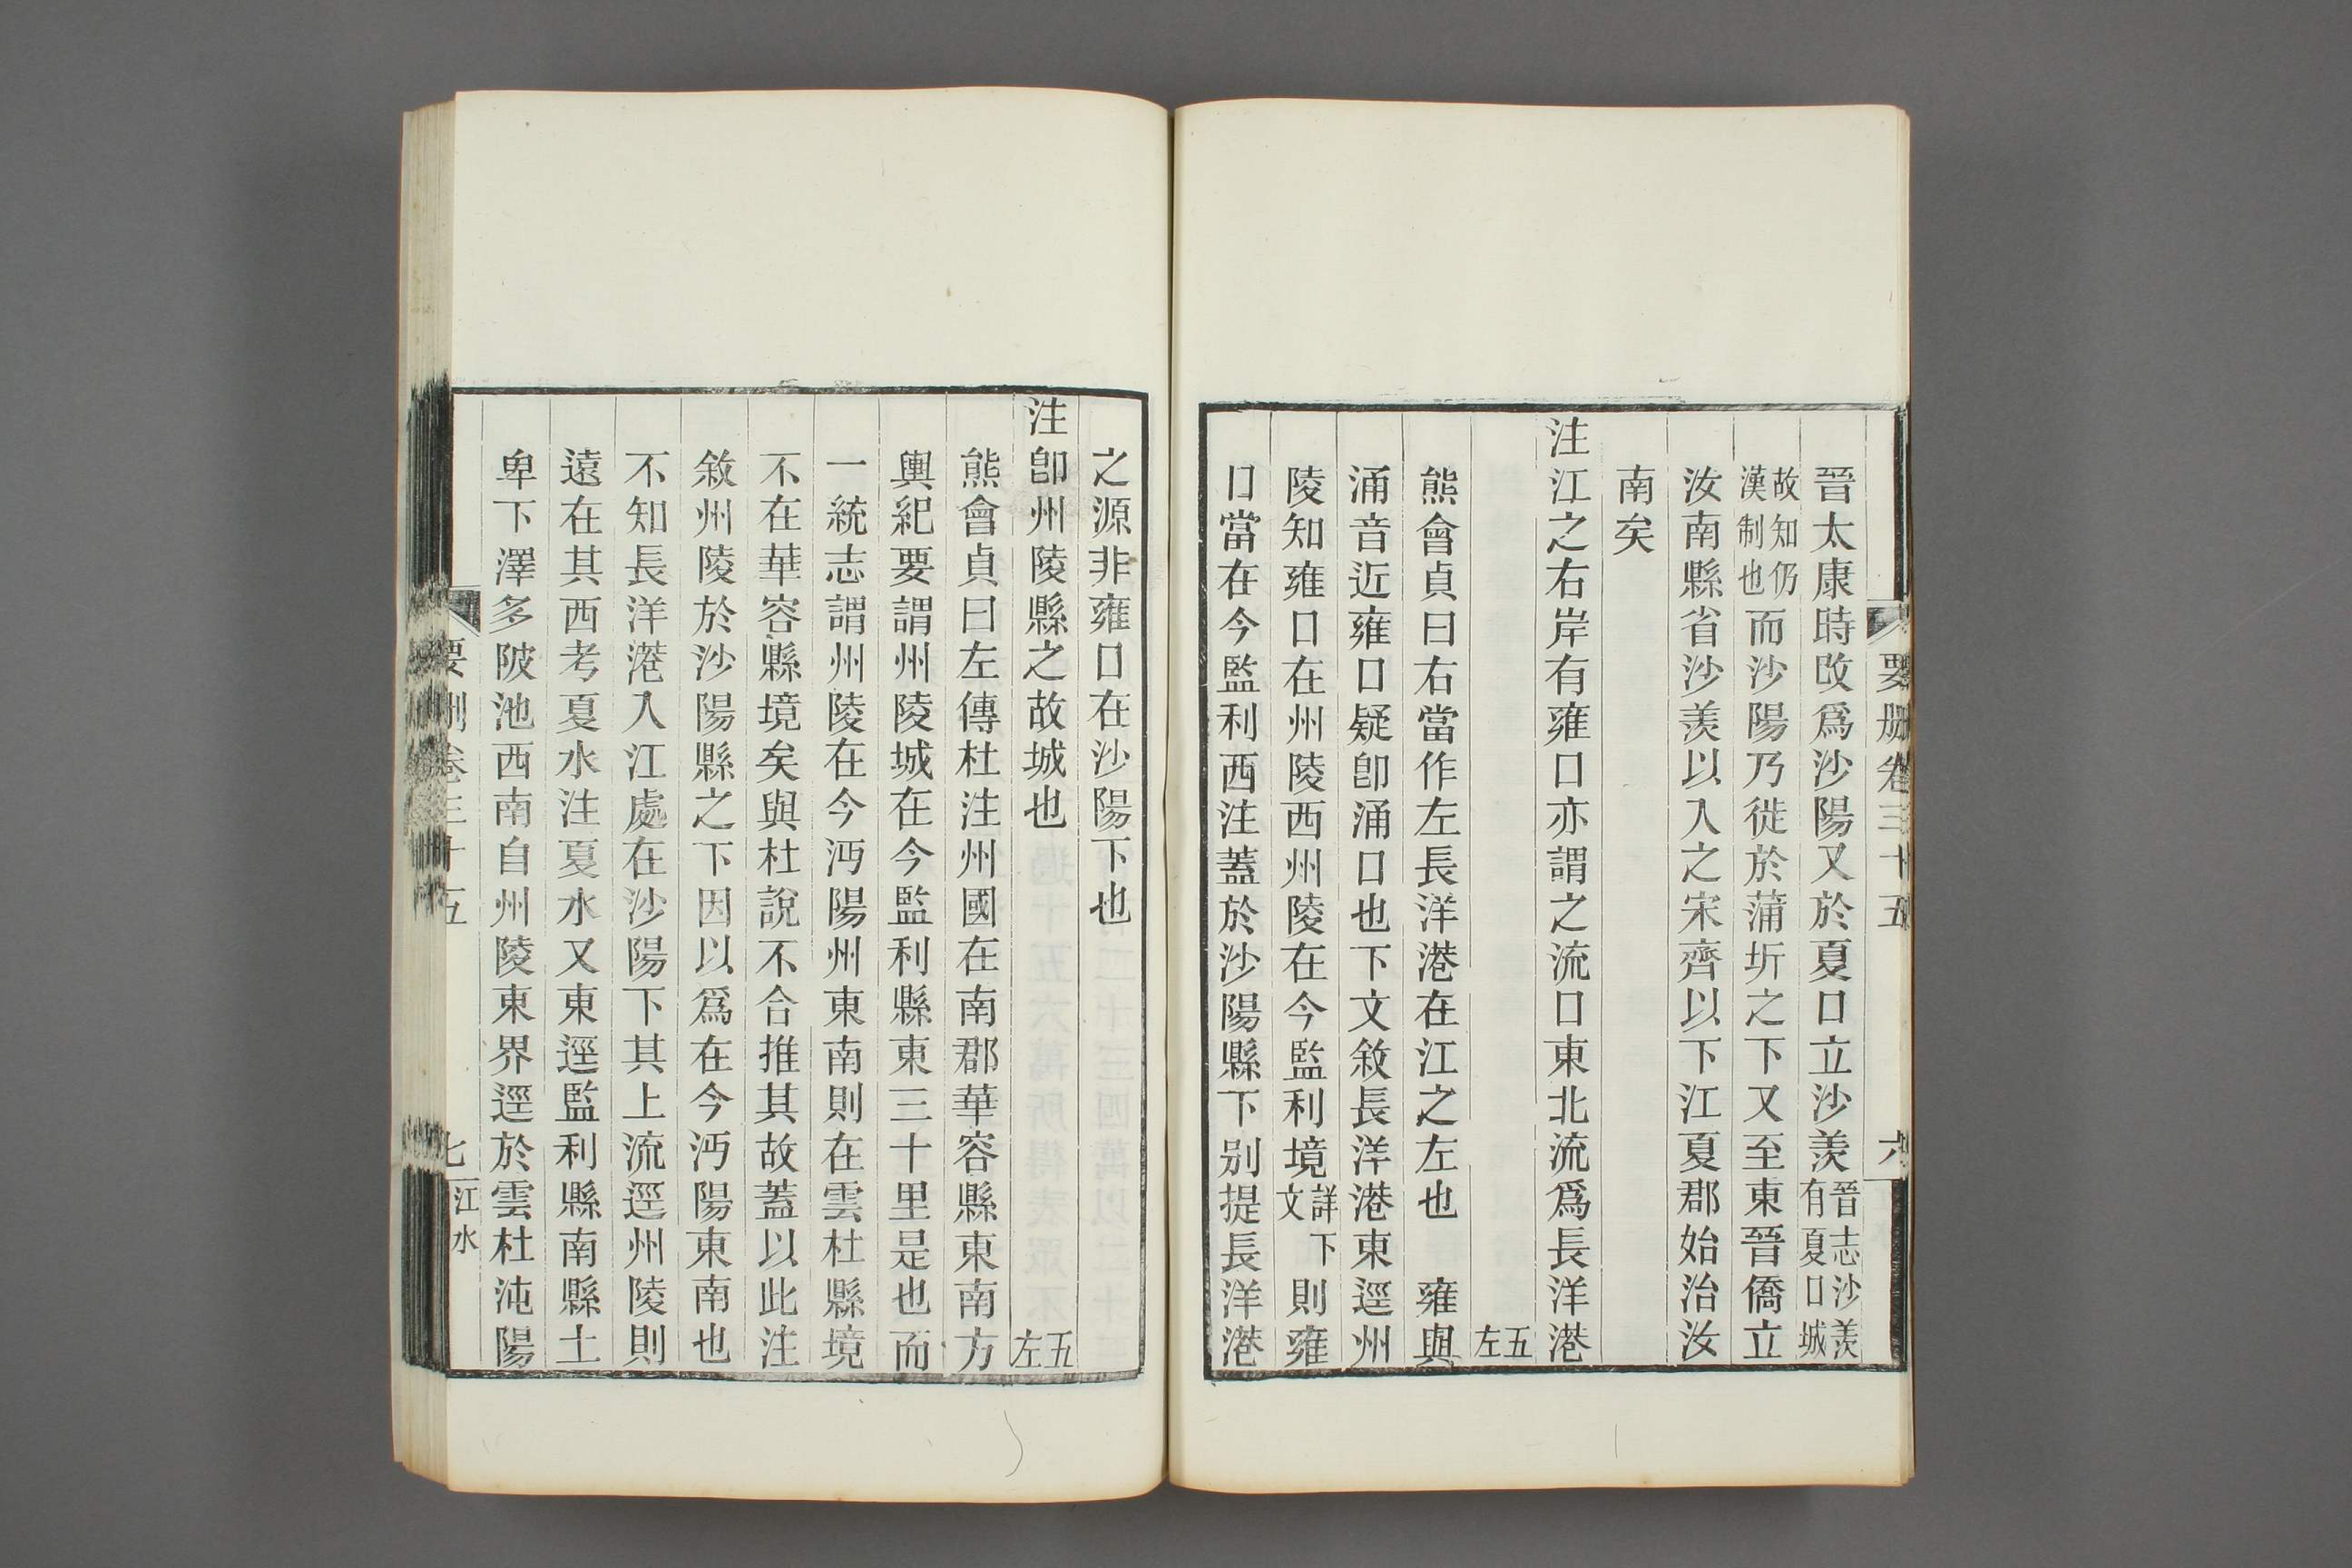 要刪卷三十五 六
晉太康時改爲沙陽又於夏口立沙羨晉志沙羨有夏口城
故知仍漢制也而沙陽乃徙於蒲圻之下又至東晉僑立
汝南縣省沙羨以入之宋齊以下江夏郡始治汝
南矣
注江之右岸有雍口亦謂之流口東北流爲長洋港
五左
熊會貞曰右當作左長洋港在江之左也 雍與
涌音近雍口疑卽涌口也下文敘長洋港東逕州
陵知雍口在州陵西州陵在今監利境詳下文則雍
口當在今監利西注蓋於沙陽縣下別提長洋港
之源非雍口在沙陽下也
注卽州陵縣之故城也 五左
熊會貞曰左傳杜注州國在南郡華容縣東南方
輿紀要謂州陵城在今監利縣東三十里是也而
一統志謂州陵在今沔陽州東南則在雲杜縣境
不在華容縣境矣與杜說不合推其故蓋以此注
敘州陵於沙陽縣之下因以爲在今沔陽東南也
不知長洋港入江處在沙陽下其上流逕州陵則
遠在其西考夏水注夏水又東逕監利縣南縣土
卑下澤多陂池西南自州陵東界逕於雲杜沌陽
要刪卷三十五 七 江水